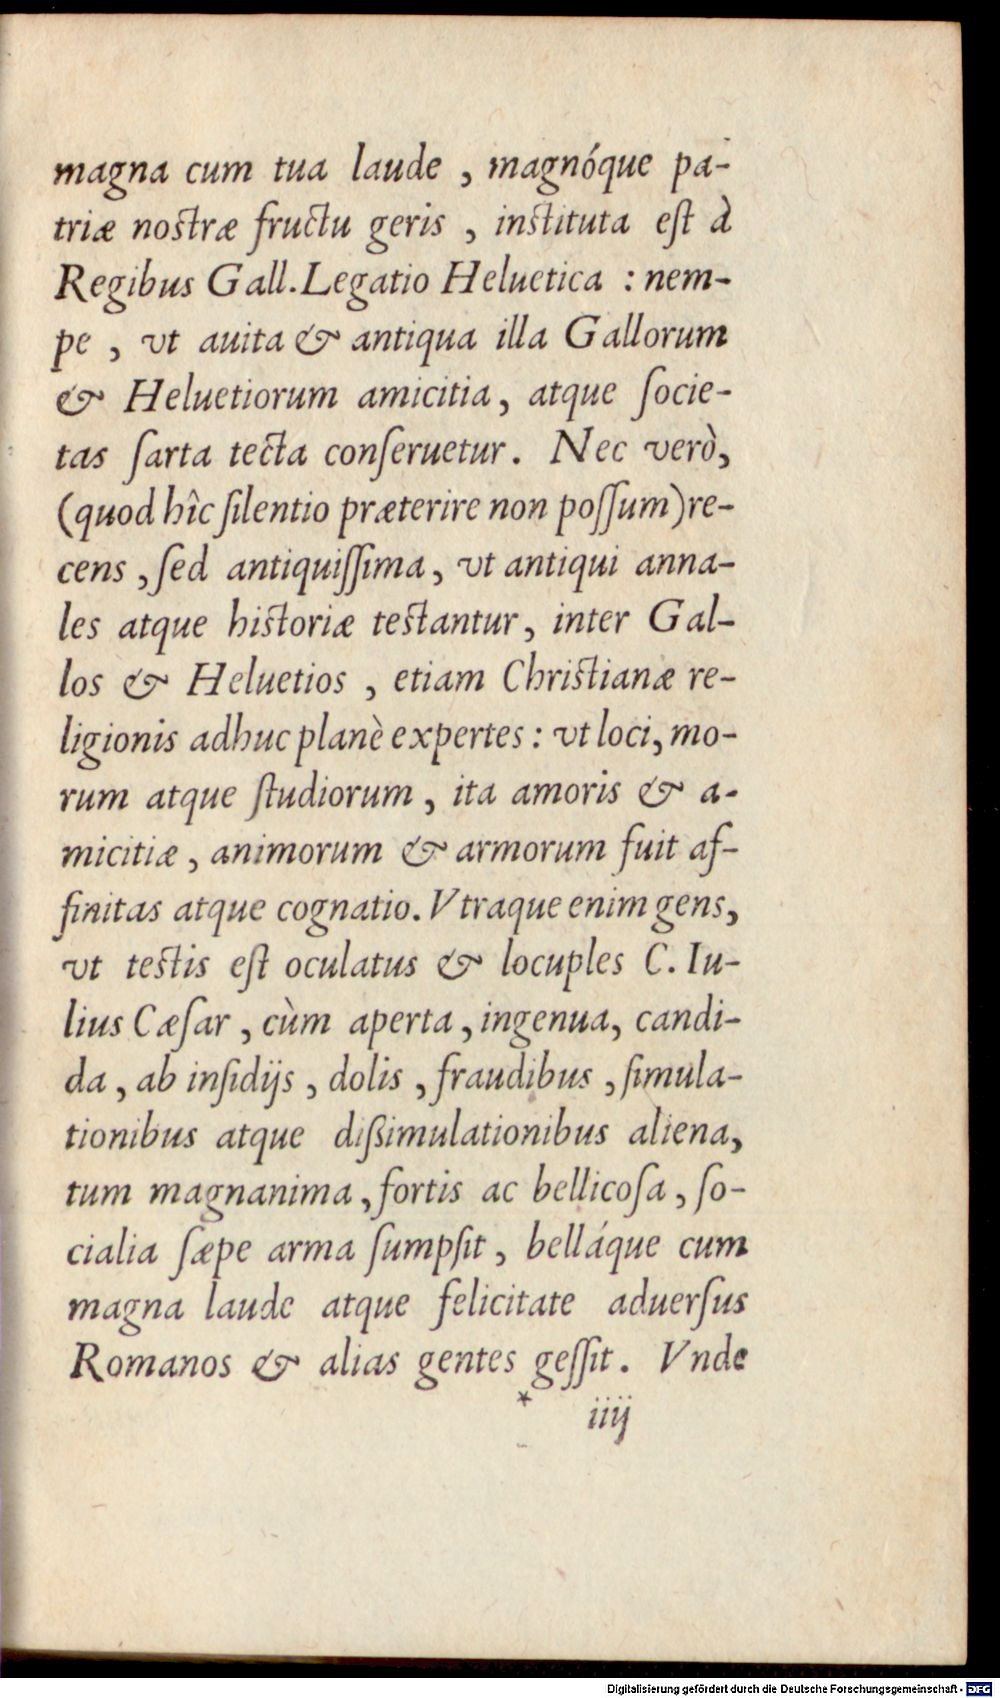 magna cum tua laude , magnóque pa-
triæ nostræ fructu geris , instituta eſt à
Regibus Gall. Legatio Heluetica : nem-
pe , vt auita & antiqua illa Gallorum
& Heluetiorum amicitia, atque ſocie-
tas ſarta tecta conſeruetur. Nec verò,
(quod hîc ſilentio præterire non poſſum) re-
cens , ſed antiquiſſima, vt antiqui anna-
les atque historiæ testantur, inter Gal-
los & Heluetios , etiam Christianæ re-
ligionis adhuc planè expertes : vt loci, mo-
rum atque ſtudiorum , ita amoris & a-
micitiæ , animorum & armorum fuit af-
finitas atque cognatio. Vtraque enim gens,
vt testis eſt oculatus & locuples C. Iu-
lius Cæſar , cùm aperta, ingenua, candi-
da , ab inſidijs , dolis , fraudibus , ſimula-
tionibus atque diſsimulationibus aliena,
tum magnanima, fortis ac bellicoſa, ſo-
cialia ſæpe arma ſumpſit , belláque cum
magna laude atque felicitate aduerſus
Romanos & alias gentes geſſit. Vnde
* iiij
Digitalisierung gefördert durch die Deutsche Forschungsgemeinschaft - DFG